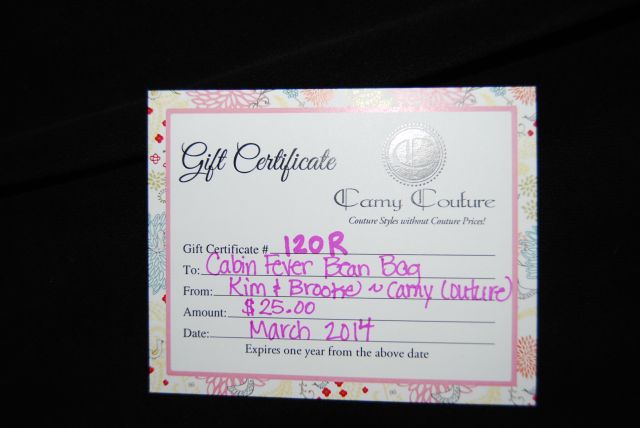 Gift Certificate
Camy Couture
Couture Styles without Couture Prices!
Gift Certificate # 120R
To: Cabin Fever Bean Bag
From: Kim & Brooke ~ Camy Couture
Amount: $25.00
Date: March 2014
Expires one year from the above date